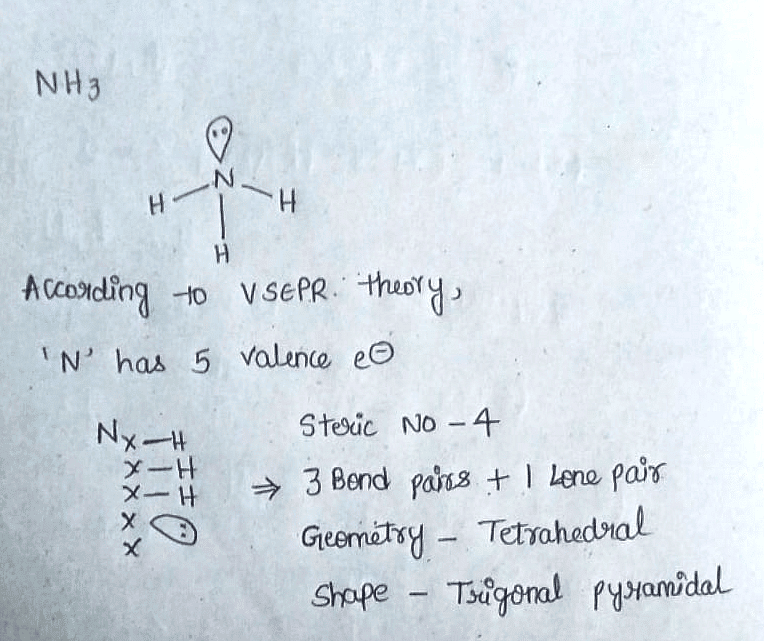 NH3
N
H H
H
According to VSEPR. theory,
'N' has 5 valence e⊖
Nx—H
x—H
x—H
x
x
Steric No – 4
⇒ 3 Bond pairs + 1 Lone pair
Geometry – Tetrahedral
Shape – Trigonal pyramidal